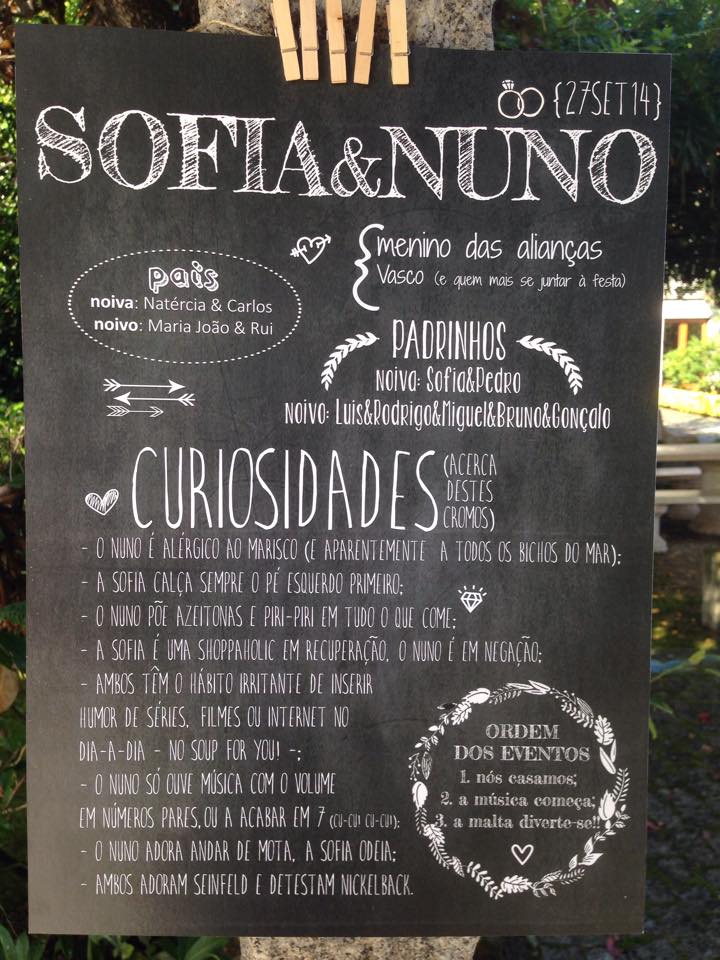 {27SET14}
SOFIA&NUNO
menino das alianças
Vasco (e quem mais se juntar à festa)
pais
noiva: Natércia & Carlos
noivo: Maria João & Rui
PADRINHOS
noiva: Sofia&Pedro
noivo: Luis&Rodrigo&Miguel&Bruno&Gonçalo
CURIOSIDADES
(ACERCA
DESTES
CROMOS)
- O NUNO É ALÉRGICO AO MARISCO (E APARENTEMENTE A TODOS OS BICHOS DO MAR);
- A SOFIA CALÇA SEMPRE O PÉ ESQUERDO PRIMEIRO;
- O NUNO PÕE AZEITONAS E PIRI-PIRI EM TUDO O QUE COME;
- A SOFIA É UMA SHOPPAHOLIC EM RECUPERAÇÃO, O NUNO É EM NEGAÇÃO;
- AMBOS TÊM O HÁBITO IRRITANTE DE INSERIR
HUMOR DE SÉRIES, FILMES OU INTERNET NO
DIA-A-DIA - NO SOUP FOR YOU! -;
- O NUNO SÓ OUVE MÚSICA COM O VOLUME
EM NÚMEROS PARES, OU A ACABAR EM 7 (CU-CU! CU-CU!);
- O NUNO ADORA ANDAR DE MOTA, A SOFIA ODEIA;
- AMBOS ADORAM SEINFELD E DETESTAM NICKELBACK.
ORDEM
DOS EVENTOS
1. nós casamos;
2. a música começa;
3. a malta diverte-se!!